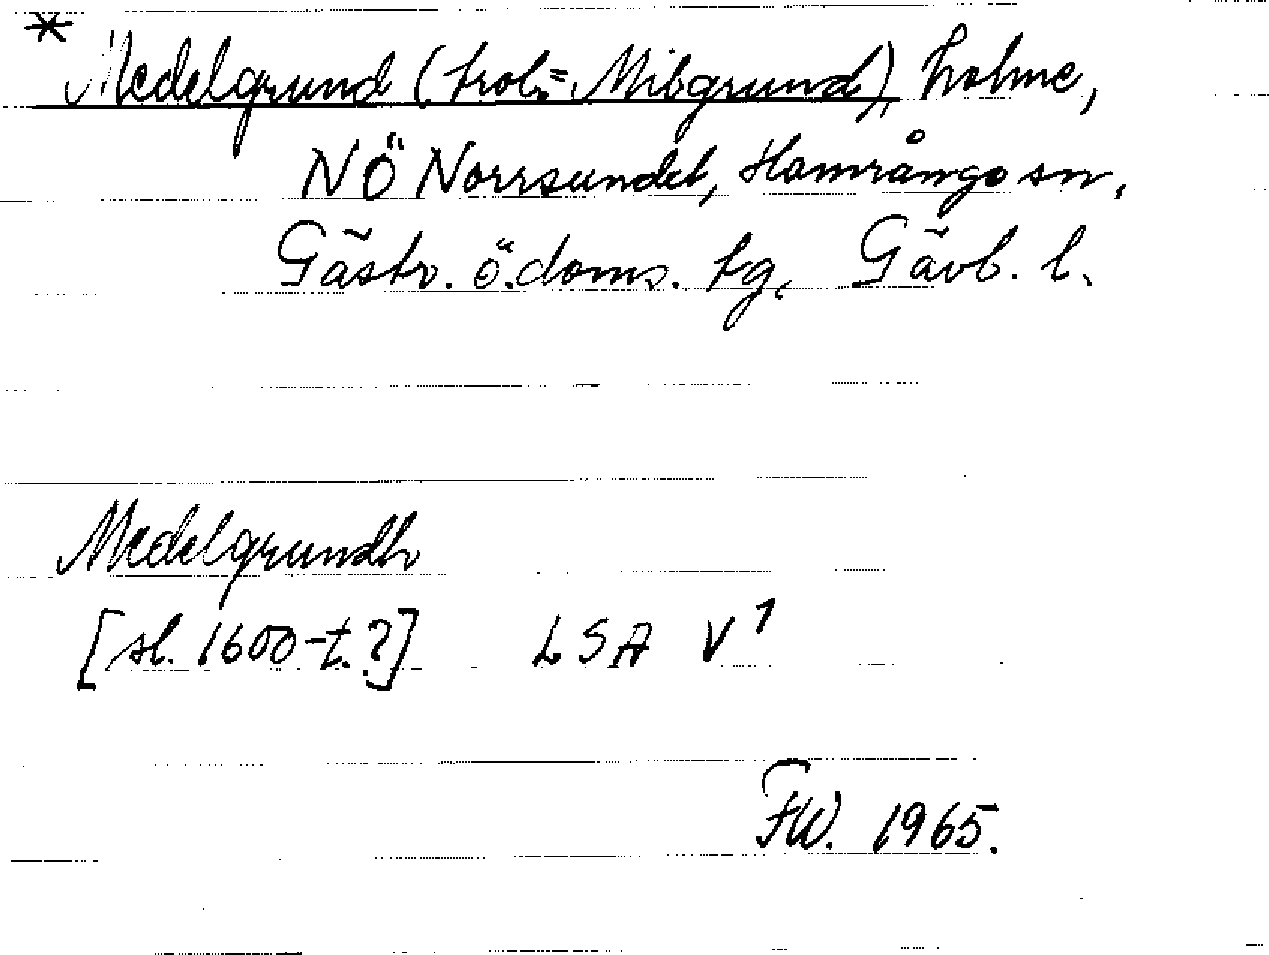 * Medelgrund (trol. = Mitgrund), holme,
NÖ Norrsundet, Hamrånge sn,
Gästr. ö. doms. tg, Gävl. l.
Medelgrundh
[sl. 1600-t.?] LSA V 1
FW. 1965.